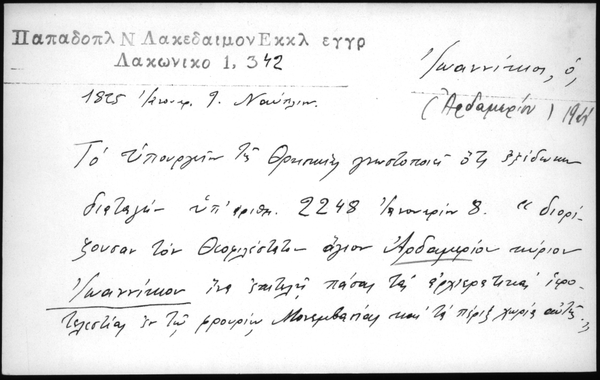 Παπαδοπλ Ν Λακεδαιμον Εκκλ εγγρ
Λακωνικο 1, 342
Ἰωαννίκιος, ὁ,
(Ἀρδαμερίου)
1825 Ἰανουαρ. 9. Ναύπλιον.
Τὸ ὑπουργεῖον τῆς Θρησκείας γνωστοποιεῖ ὅτι ἐξέδωκεν
διαταγὴν ὑπ' ἀριθμ. 2248 Ἰανουαρίου 8. " διορί-
ζουσαν τὸν Θεοφιλέστατον ἅγιον Ἀρδαμερίου κύριον
Ἰωαννίκιον ἵνα ἐκτελῇ πάσας τὰς ἀρχιερατικὰς ἱερο-
τελεστίας ἐν τῷ φρουρίῳ Μονεμβασίας καὶ τὰ πέριξ χωρία αὐτῆς "